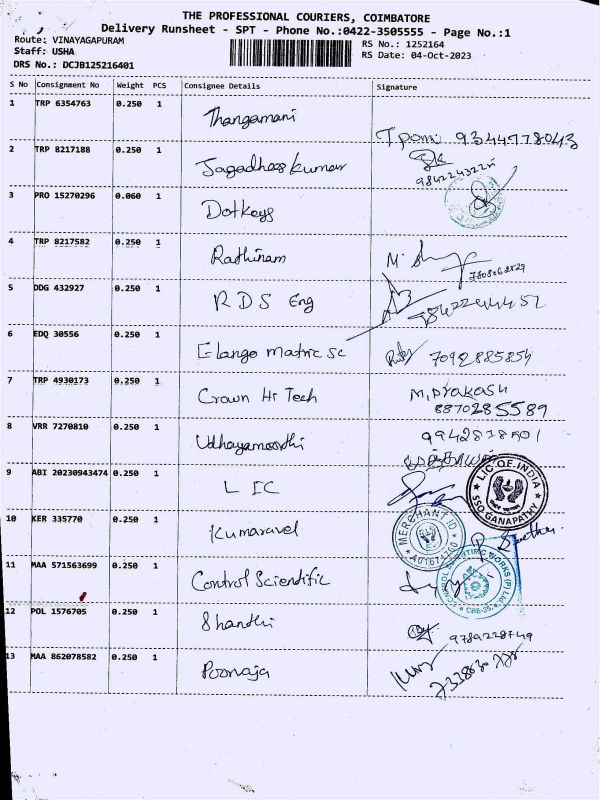 THE PROFESSIONAL COURIERS, COIMBATORE
Delivery Runsheet - SPT - Phone No.:0422-3505555 - Page No.:1
Route: VINAYAGAPURAM
RS No.: 1252164
Staff: USHA
RS Date: 04-Oct-2023
DRS No.: DCJB125216401
S No Consignment No Weight PCS Consignee Details Signature
1 TRP 6354763 0.250 1 Thangamani
9344778043
2 TRP 8217188 0.250 1 Jagadheeskumar
3 PRO 15270296 0.060 1 Dotkeys
4 TRP 8217582 0.250 1 Rathinam
5 DDG 432927 0.250 1 RDS Eng
6 EDQ 30556 0.250 1 Elango matric sc 7092885854
7 TRP 4930173 0.250 1 Crown Hi Tech M. Prakash
8870285589
8 VRR 7270810 0.250 1 Udhayamoorthi
9 ABI 20230943474 0.250 1 LIC
LIC OF INDIA
SSO GANAPATHY
10 KER 335770 0.250 1 Kumaravel
MERCHANT ID
11 MAA 571563699 0.250 1 Control Scientific
CONTROL SCIENTIFIC WORKS (P) LTD
CBE-35
12 POL 1576705 0.250 1 Shanthi
13 MAA 862078582 0.250 1 Poonaja